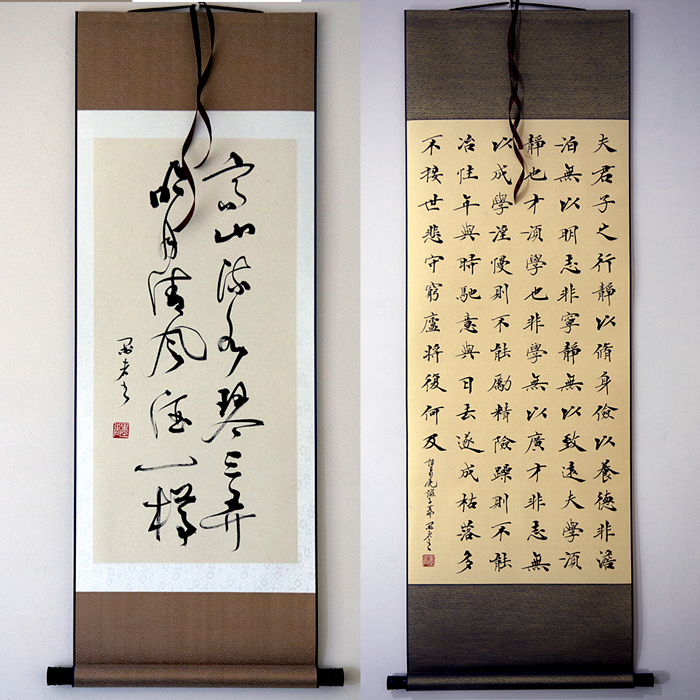 高山流水琴三弄
明月清風酒一樽
夫君子之行靜以脩身儉以養德非澹
泊無以明志非寧靜無以致遠夫學須
靜也才須學也非學無以廣才非志無
以成學淫慢則不能勵精險躁則不能
冶性年與時馳意與日去遂成枯落多
不接世悲守窮廬將復何及